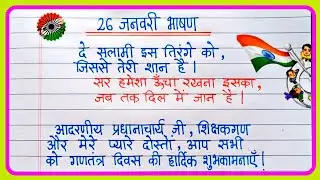 26 जनवरी भाषण
दे सलामी इस तिरंगे को,
जिससे तेरी शान है।
सर हमेशा ऊँचा रखना इसका,
जब तक दिल में जान है।
आदरणीय प्रधानाचार्य जी, शिक्षकगण
और मेरे प्यारे दोस्तों, आप सभी
को गणतंत्र दिवस की हार्दिक शुभकामनाएँ!